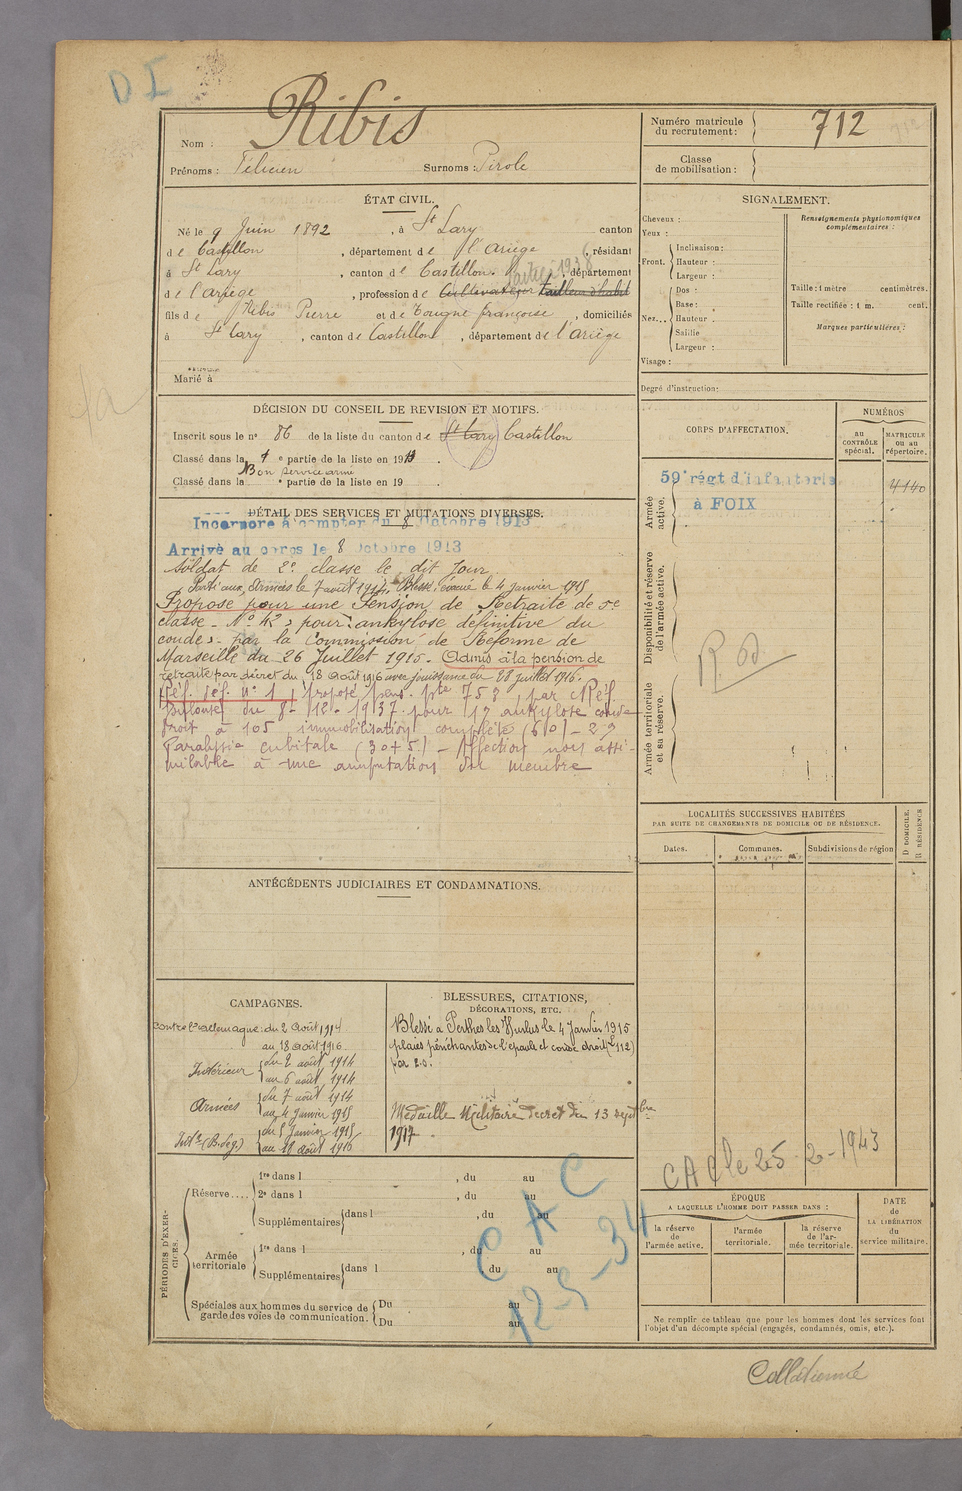 D I
Nom : Ribis
Prénoms : Félicien Surnoms : Pirole
Numéro matricule
du recrutement : 712
Classe
de mobilisation :
ÉTAT CIVIL.
Né le 9 Juin 1892 , à St Lary canton
de Castillon , département de l'Ariège , résidant
à St Lary , canton de Castillon , département
de l'ariège , profession de Cultivateur tailleur d'habit
fils de Ribis Pierre et de Tougne françoise , domiciliés
à St Lary , canton de Castillon , département de l'ariège
Marié à
SIGNALEMENT.
Cheveux :
Yeux :
Front. Inclinaison :
Hauteur :
Largeur :
Nez... Dos :
Base :
Hauteur :
Saillie
Largeur :
Visage :
Renseignements physionomiques
complémentaires :
Taille : 1 mètre centimètres.
Taille rectifiée : 1 m. cent.
Marques particulières :
Degré d'instruction :
DÉCISION DU CONSEIL DE REVISION ET MOTIFS.
Inscrit sous le n° 86 de la liste du canton de St Lary Castillon
Classé dans la 1 e partie de la liste en 1913 .
Bon service armé
Classé dans la e partie de la liste en 19 .
DÉTAIL DES SERVICES ET MUTATIONS DIVERSES.
Incorporé à compter du 8 Octobre 1913
Arrivé au corps le 8 Octobre 1913
Soldat de 2e classe le dit Jour
Parti aux Armées le 7 août 1914. Blessé, évacué le 4 Janvier 1915
Proposé pour une Pension de Retraite de 5e
classe - No 42 pour "ankylose définitive du
coude" - par la Commission de Réforme de
Marseille du 26 Juillet 1915. Admis à la pension de
retraite par décret du 18 Août 1916 avec jouissance du 28 juillet 1916.
Réf. déf. No 1, proposé pens. pte 75 % par C Réf.
Toulouse du 8-12-1937 pour 1° ankylose coude
droit à 105 immobilisation complète (60) - 2°
Paralysie cubitale (30+5) - Affection non assi-
milable à une amputation du membre
CORPS D'AFFECTATION.
NUMÉROS
au
CONTRÔLE
spécial.
MATRICULE
ou au
répertoire.
Armée
active.
59e régt d'infanterie
à FOIX
4140
Disponibilité et réserve
de l'armée active.
Armée territoriale
et sa réserve.
LOCALITÉS SUCCESSIVES HABITÉES
PAR SUITE DE CHANGEMENTS DE DOMICILE OU DE RÉSIDENCE.
Dates.
Communes.
Subdivisions de région
D DOMICILE.
R RÉSIDENCE
ANTÉCÉDENTS JUDICIAIRES ET CONDAMNATIONS.
CAMPAGNES.
Contre l'allemagne : du 2 Août 1914
au 18 Août 1916
Intérieur du 2 août 1914
au 6 août 1914
Armées du 7 août 1914
au 4 Janvier 1915
Intr (B. de g.) du 5 Janvier 1915
au 18 août 1916
BLESSURES, CITATIONS,
DÉCORATIONS, ETC.
Blessé à Perthes les Hurlus le 4 Janvier 1915
plaies pénétrantes de l'épaule et coude droit
par E.O.
Médaille Militaire décret du 13 septbre
1917
CAC le 25-2-1943
PÉRIODES D'EXER-
CICES.
Réserve.... 1re dans l , du au
2e dans l , du au
Supplémentaires dans l , du au
Armée
territoriale 1re dans l , du au
Supplémentaires dans l , du au
Spéciales aux hommes du service de
garde des voies de communication. Du au
Du au
CAC
12-5-34
ÉPOQUE
A LAQUELLE L'HOMME DOIT PASSER DANS :
la réserve
de
l'armée active.
l'armée
territoriale.
la réserve
de l'ar-
mée territoriale.
DATE
de
LA LIBÉRATION
du
service militaire.
Ne remplir ce tableau que pour les hommes dont les services font
l'objet d'un décompte spécial (engagés, condamnés, omis, etc.).
Collationné